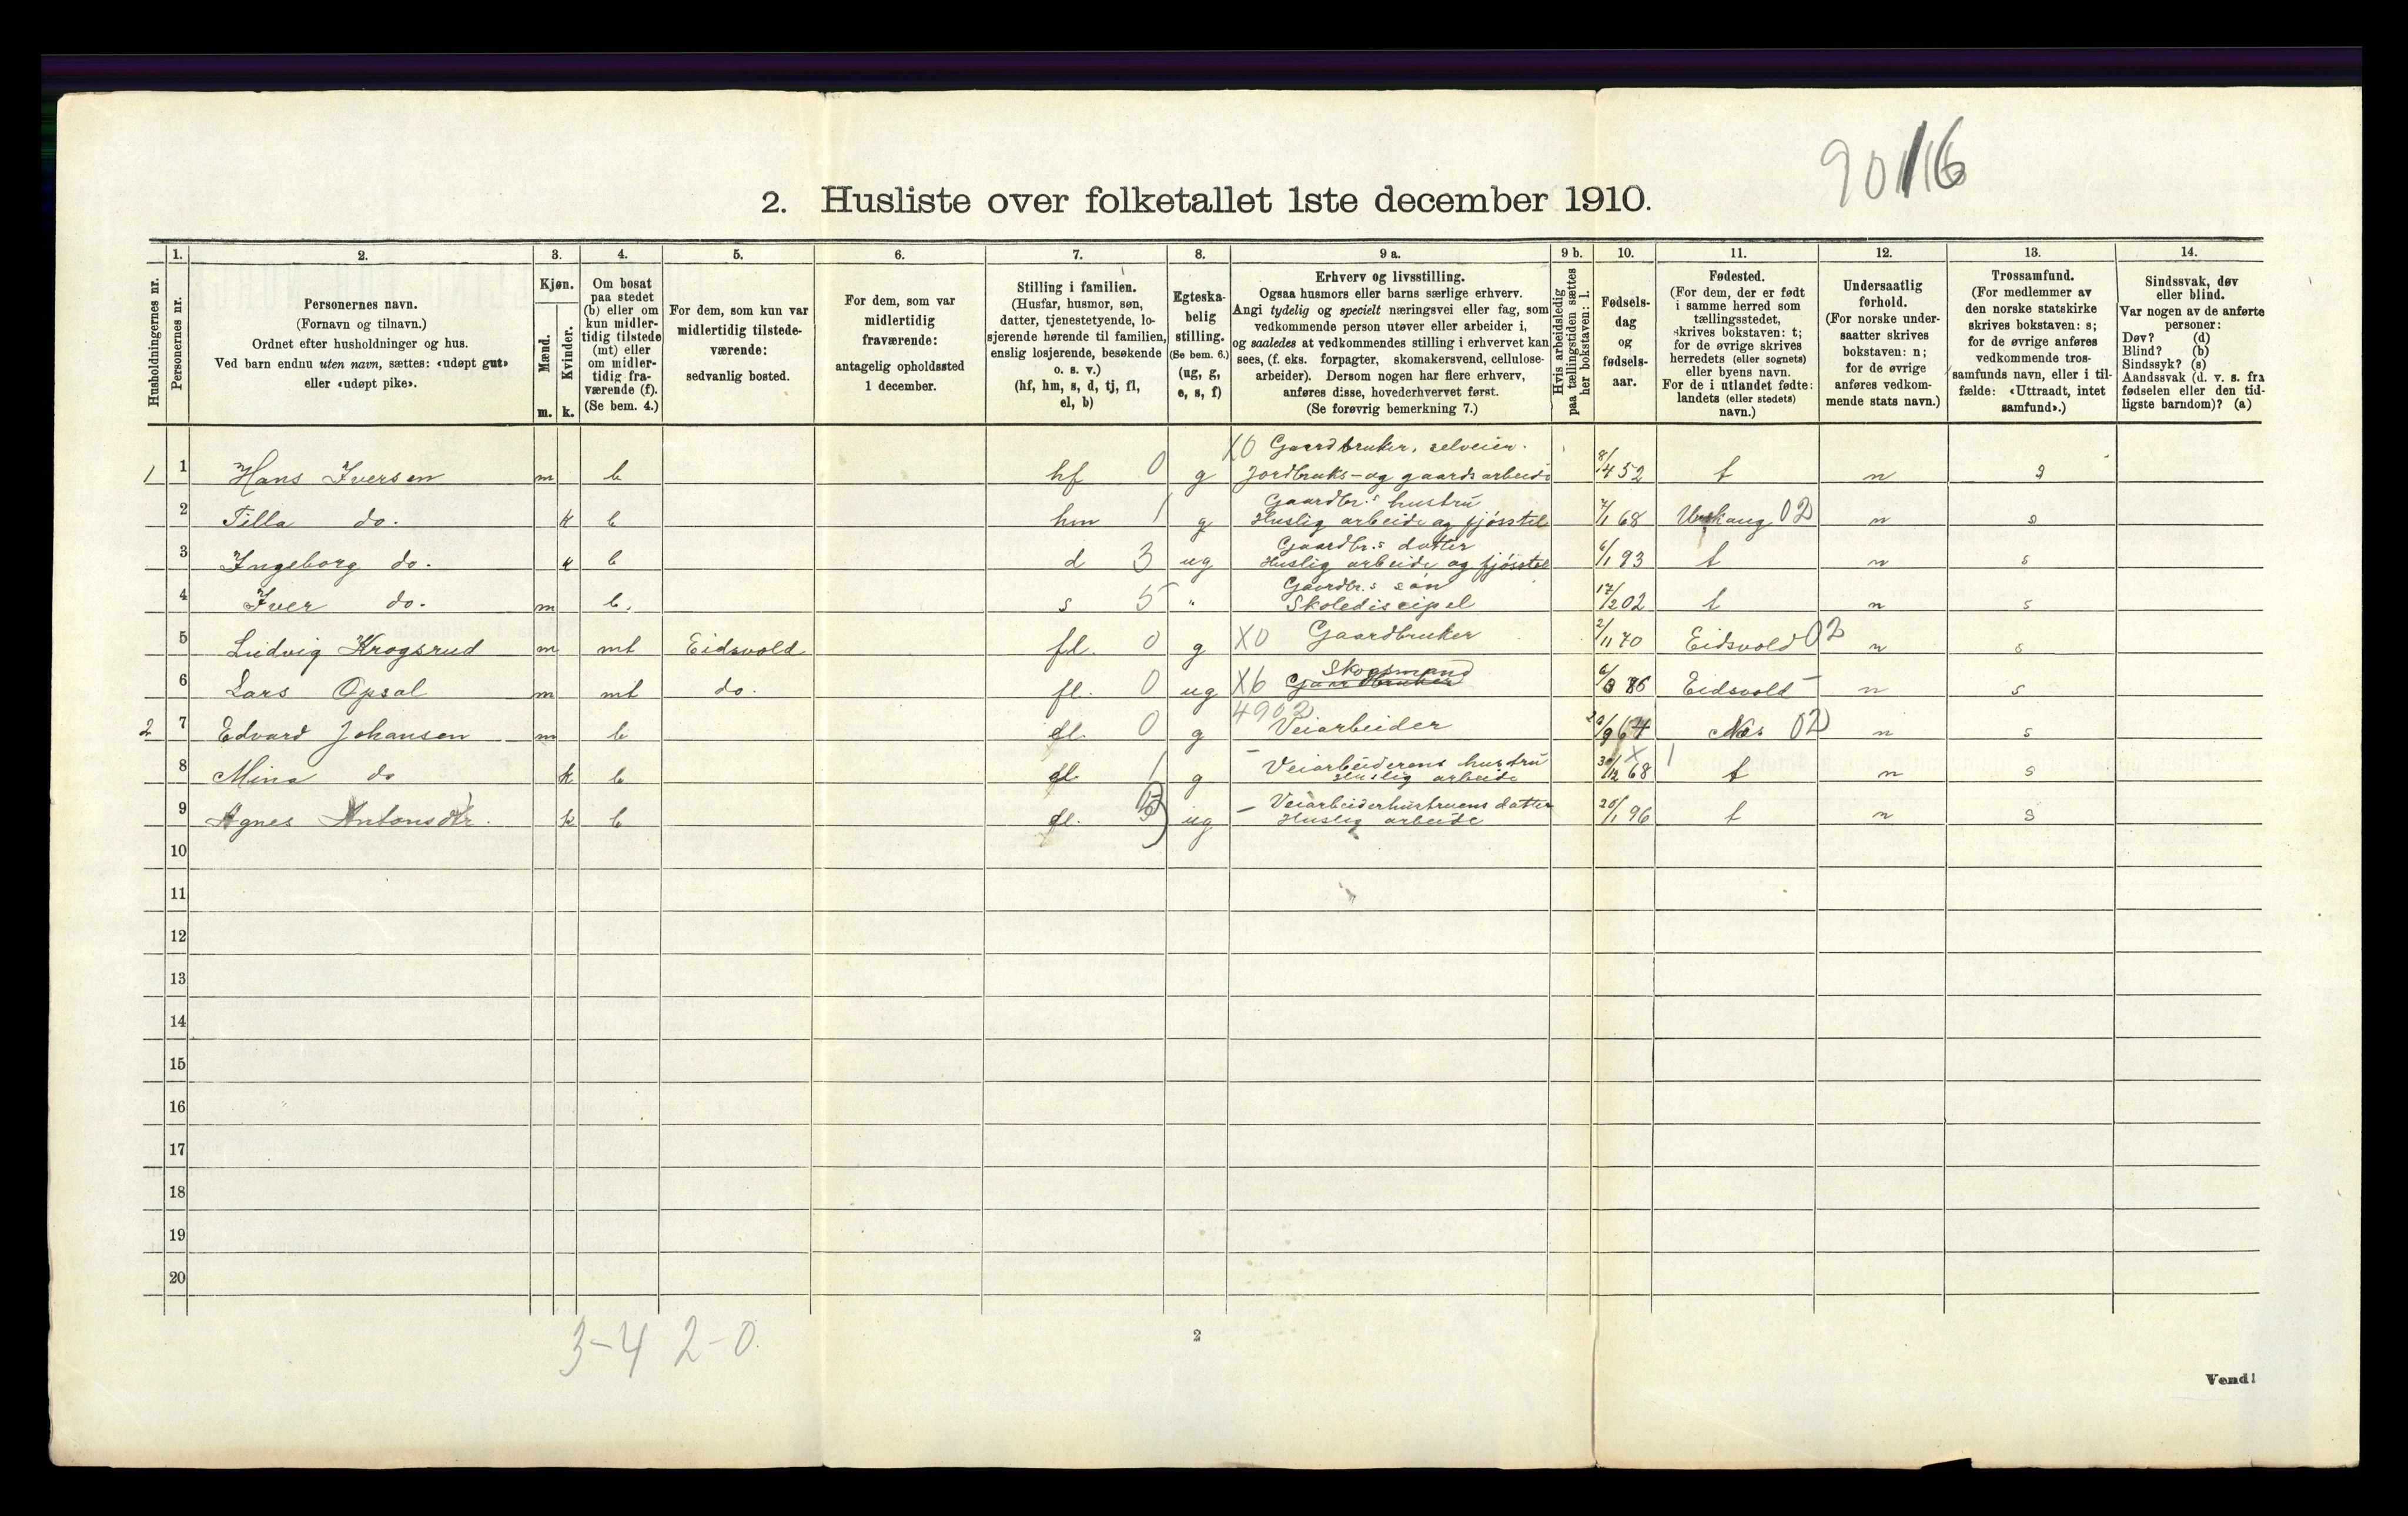 90116
2. Husliste over folketallet 1ste december 1910.
1. 2. 3. 4. 5. 6. 7. 8. 9 a. 9 b. 10. 11. 12. 13. 14.
Husholdningernes nr.
Personernes nr.
Personernes navn.
(Fornavn og tilnavn.)
Ordnet efter husholdninger og hus.
Ved barn endnu uten navn, sættes: «udøpt gut»
eller «udøpt pike».
Kjøn.
Mænd.
m.
Kvinder.
k.
Om bosat
paa stedet
(b) eller om
kun midler-
tidig tilstede
(mt) eller
om midler-
tidig fra-
værende (f).
(Se bem. 4.)
For dem, som kun var
midlertidig tilstede-
værende:
sedvanlig bosted.
For dem, som var
midlertidig
fraværende:
antagelig opholdssted
1 december.
Stilling i familien.
(Husfar, husmor, søn,
datter, tjenestetyende, lo-
sjerende hørende til familien,
enslig losjerende, besøkende
o. s. v.)
(hf, hm, s, d, tj, fl,
el, b)
Egteska-
belig
stilling.
(Se bem. 6.)
(ug, g,
e, s, f)
Erhverv og livsstilling.
Ogsaa husmors eller barns særlige erhverv.
Angi tydelig og specielt næringsvei eller fag, som
vedkommende person utøver eller arbeider i,
og saaledes at vedkommendes stilling i erhvervet kan
sees, (f. eks. forpagter, skomakersvend, cellulose-
arbeider). Dersom nogen har flere erhverv,
anføres disse, hovederhvervet først.
(Se forøvrig bemerkning 7.)
Hvis arbeidsledig
paa tællingstiden sættes
her bokstaven: l.
Fødsels-
dag
og
fødsels-
aar.
Fødested.
(For dem, der er født
i samme herred som
tællingsstedet,
skrives bokstaven: t;
for de øvrige skrives
herredets (eller sognets)
eller byens navn.
For de i utlandet fødte:
landets (eller stedets)
navn.)
Undersaatlig
forhold.
(For norske under-
saatter skrives
bokstaven: n;
for de øvrige
anføres vedkom-
mende stats navn.)
Trossamfund.
(For medlemmer av
den norske statskirke
skrives bokstaven: s;
for de øvrige anføres
vedkommende tros-
samfunds navn, eller i til-
fælde: «Uttraadt, intet
samfund».)
Sindssvak, døv
eller blind.
Var nogen av de anførte
personer:
Døv? (d)
Blind? (b)
Sindssyk? (s)
Aandssvak (d. v. s. fra
fødselen eller den tid-
ligste barndom)? (a)
X0 Gaardbruker, selveier.
1 1 Hans Iversen m b hf 0 g Jordbruks- og gaardsarbeide 8/4 52 t n s
Gaardbr.s hustru
2 Tilla do. k b hm 1 g Huslig arbeide og fjøsstel 7/1 68 Urskaug 02 n s
Gaardbr.s datter
3 Ingeborg do. k b d 3 ug Huslig arbeide og fjøsstel 6/1 93 t n s
Gaardbr.s søn
4 Iver do. m b. s 5 " Skolediscipel 17/2 02 t n s
5 Ludvig Krogsrud m mt Eidsvold fl. 0 g X0 Gaardbruker 2/11 70 Eidsvold 02 n s
Skogsmand
6 Lars Opsal m mt do. fl. 0 ug X6 Gaardbruker 6/3 86 Eidsvold n s
4902
2 7 Edvard Johansen m b fl. 0 g Veiarbeider 20/9 67 Nes 02 n s
Veiarbeiderens hustru
8 Mina do k b fl. 1 g Huslig arbeide 30/12 68 1 t n s
Veiarbeiderhustruens datter
9 Agnes Antonsdtr. k b fl. ug Huslig arbeide 20/1 96 t n s
10
11
12
13
14
15
16
17
18
19
20
3-4 2-0.
2
Vend!